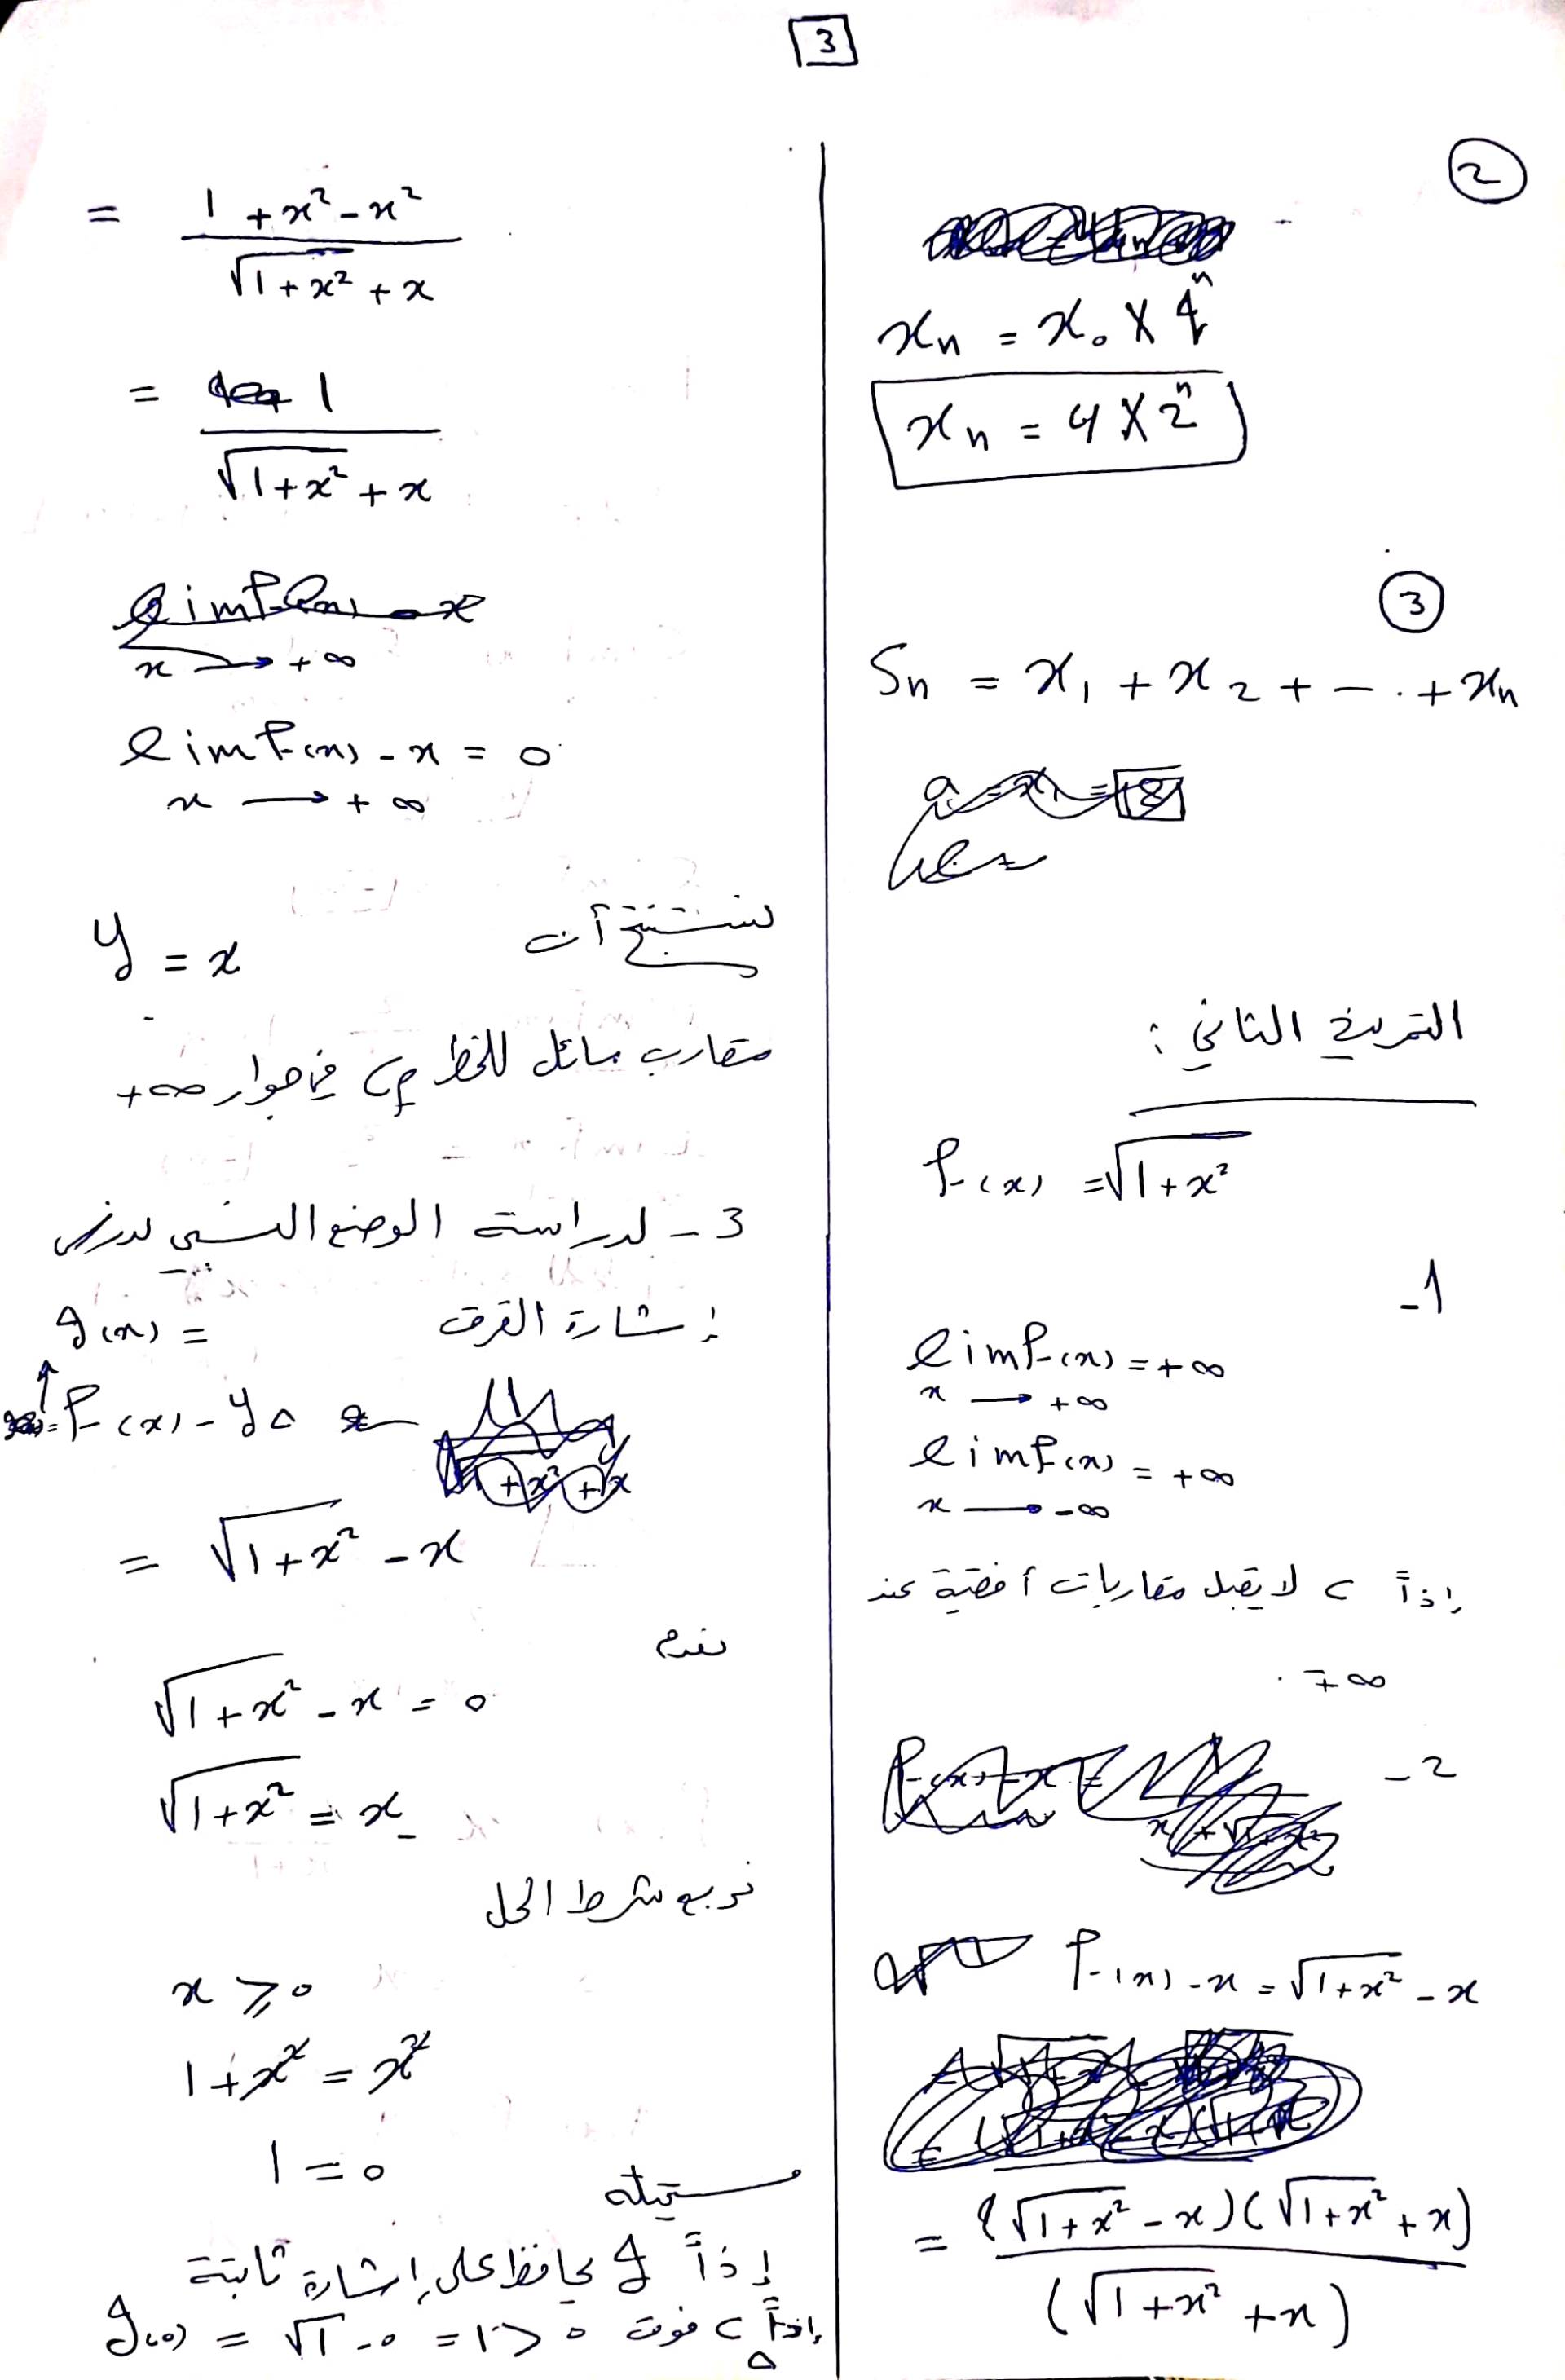 3
2
xₙ = x₀ × qⁿ
xₙ = 4 × 2ⁿ
3
Sₙ = x₁ + x₂ + - . . + xₙ
التمرين الثاني :
f(x) = √(1+x²)
1-
lim f(x) = +∞
x → +∞
lim f(x) = +∞
x → -∞
إذاً C لا يقبل مقاربات أفقية عند
∓∞ .
2-
f(x) - x = √(1+x²) - x
= (√(1+x²) - x)(√(1+x²) + x) / (√(1+x²) + x)
= (1 + x² - x²) / (√(1+x²) + x)
= 1 / (√(1+x²) + x)
lim f(x) - x = 0
x → +∞
نستنتج أن y = x
مقارب مائل للخط C في جوار +∞
3- لدراسة الوضع النسبي ندرس
إشارة الفرق g(x) =
f(x) - yΔ
= √(1+x²) - x
نعدم
√(1+x²) - x = 0
√(1+x²) = x
نربع شرط الحل
x ⩾ 0
1 + x² = x²
1 = 0
مستحيلة
إذاً g يحافظ على إشارة ثابتة
g(0) = √1 - 0 = 1 > 0 إذاً C فوق Δ